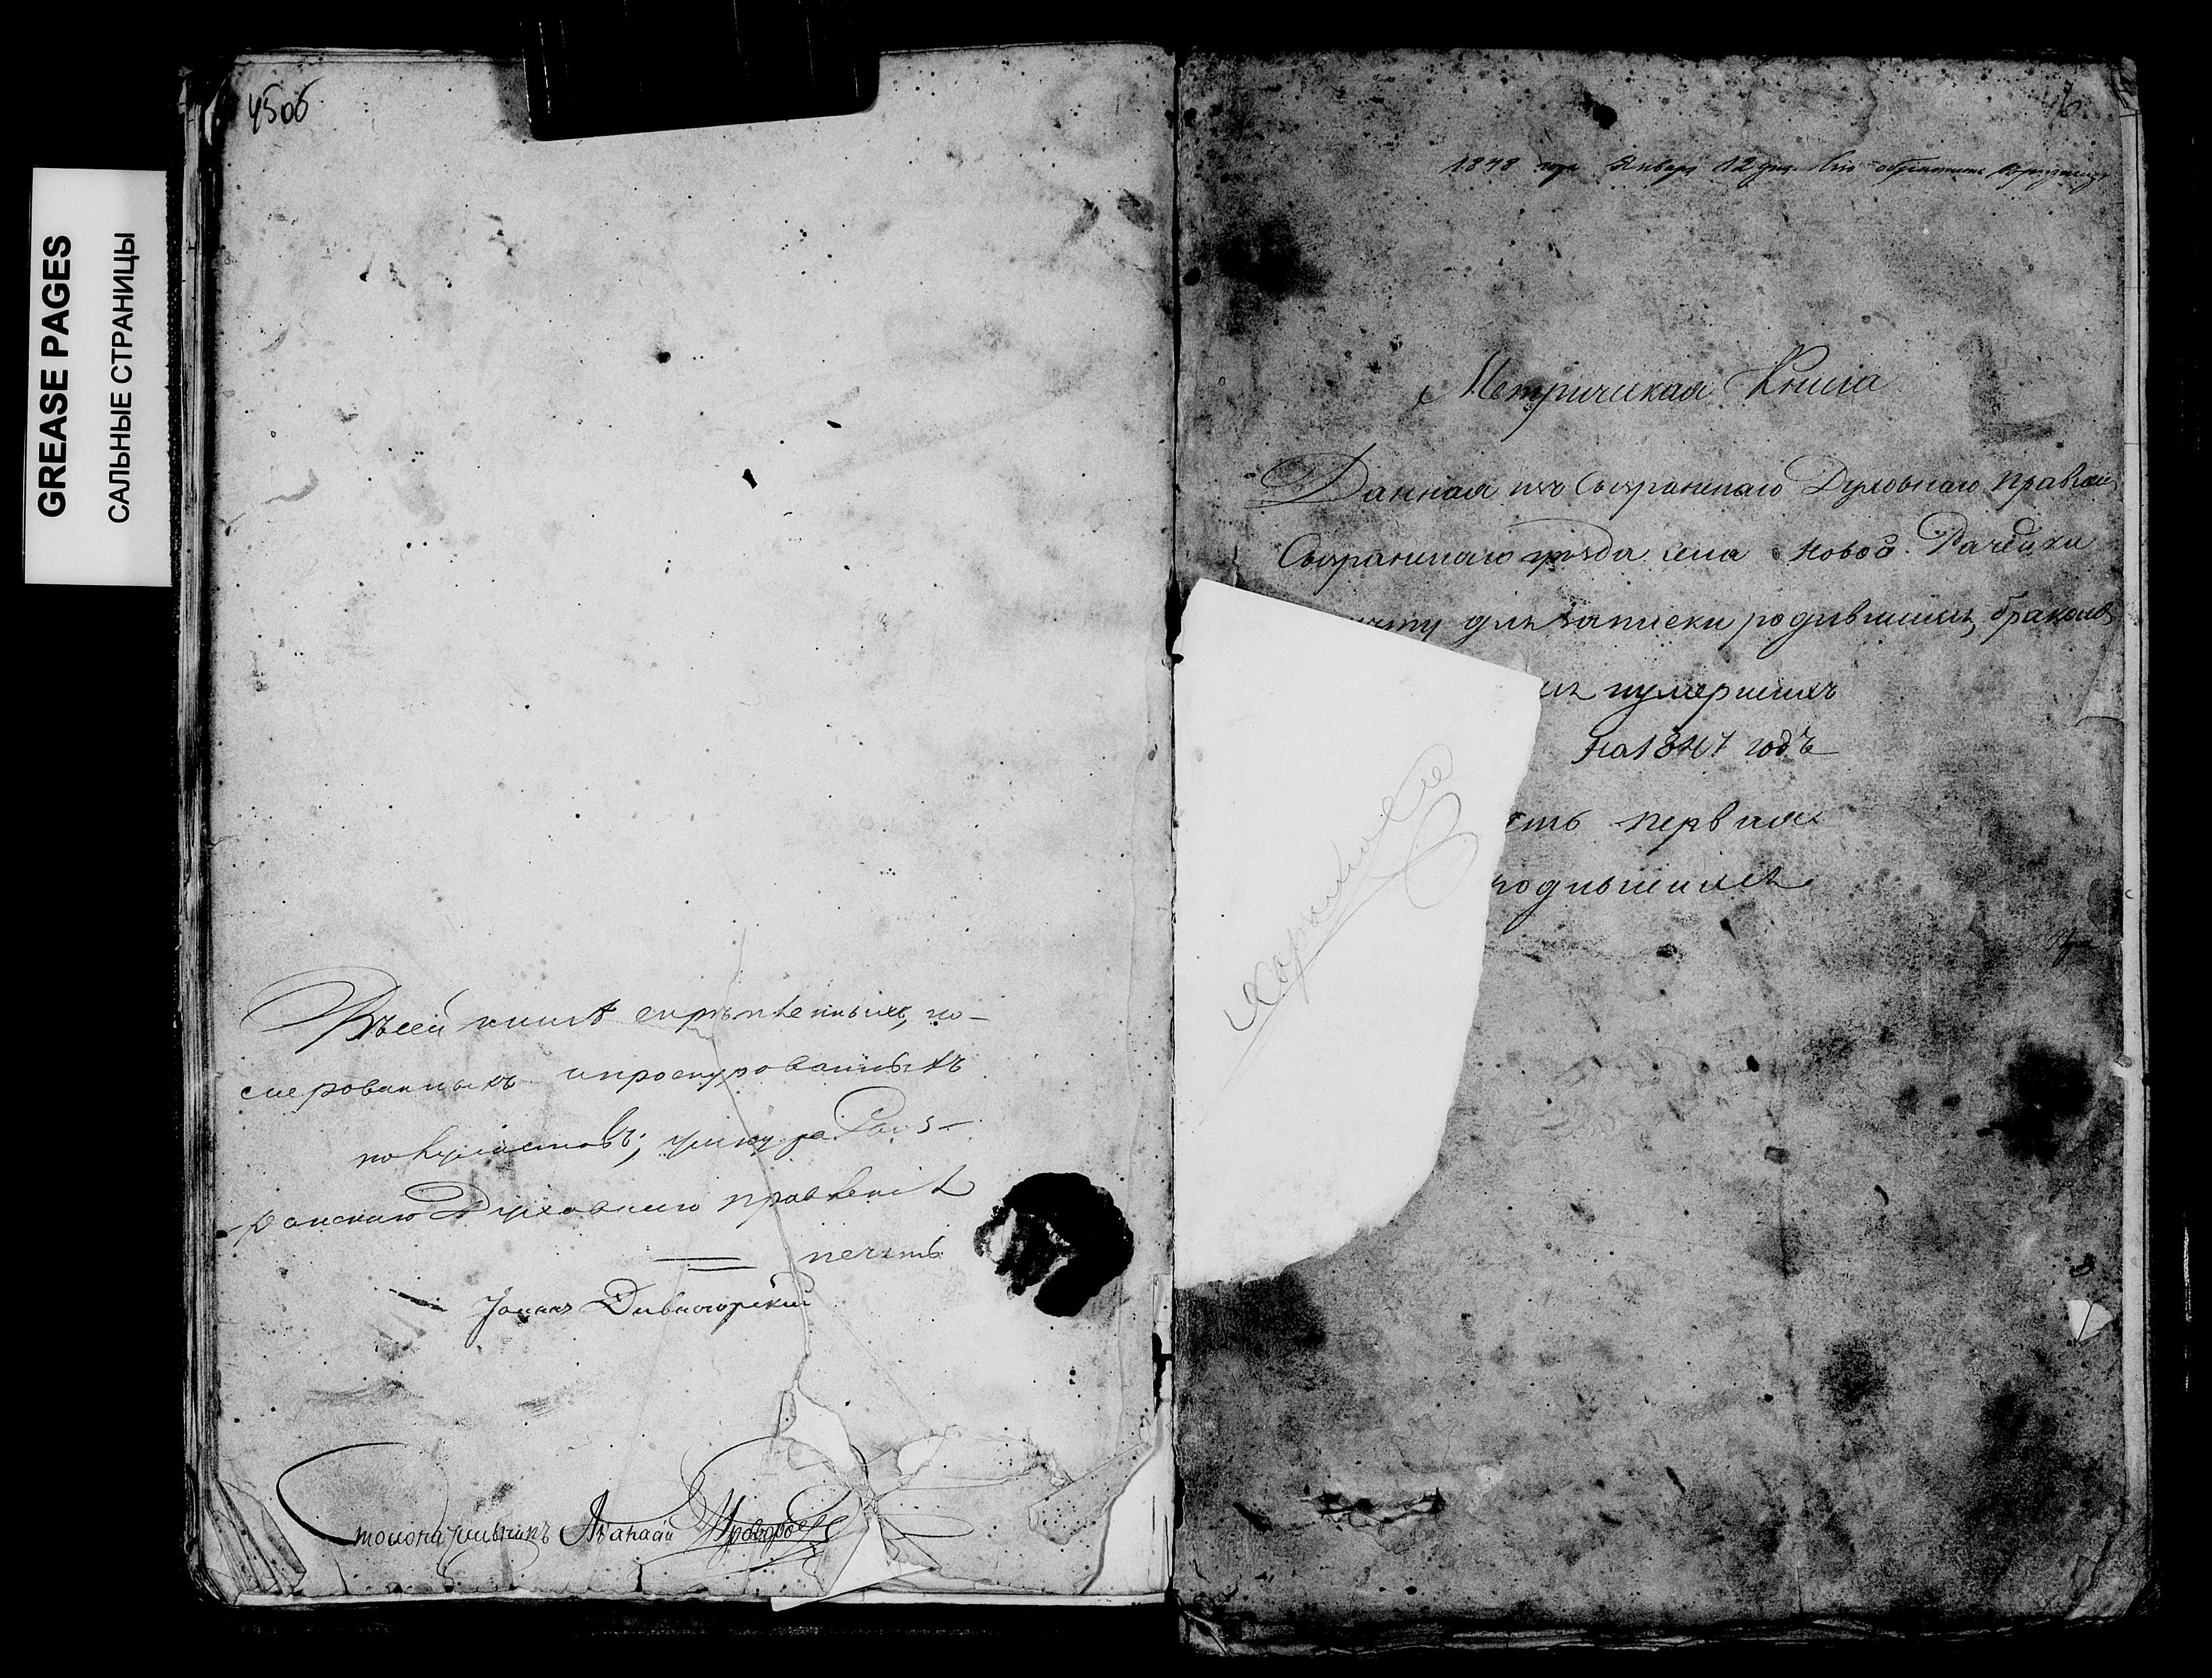 GREASE PAGES
САЛЬНЫЕ СТРАНИЦЫ
45об
Въ сей книгѣ скрѣпленныхъ, но-
мерованныхъ и прошнурованныхъ
листовъ; у шнура Сыз-
ранскаго Духовнаго правленія
печать
Іоаннъ Дивногорскій
Столоначальникъ Афанасій
46
1848 года Января 12 дня
Метрическая Книга
Данная изъ Сызранскаго Духовнаго Правлен.
Сызранскаго уѣзда села Новой Рачейки
для записки родившихся, бракосо
и умершихъ
на 1847 годъ
сть первая
родившихся